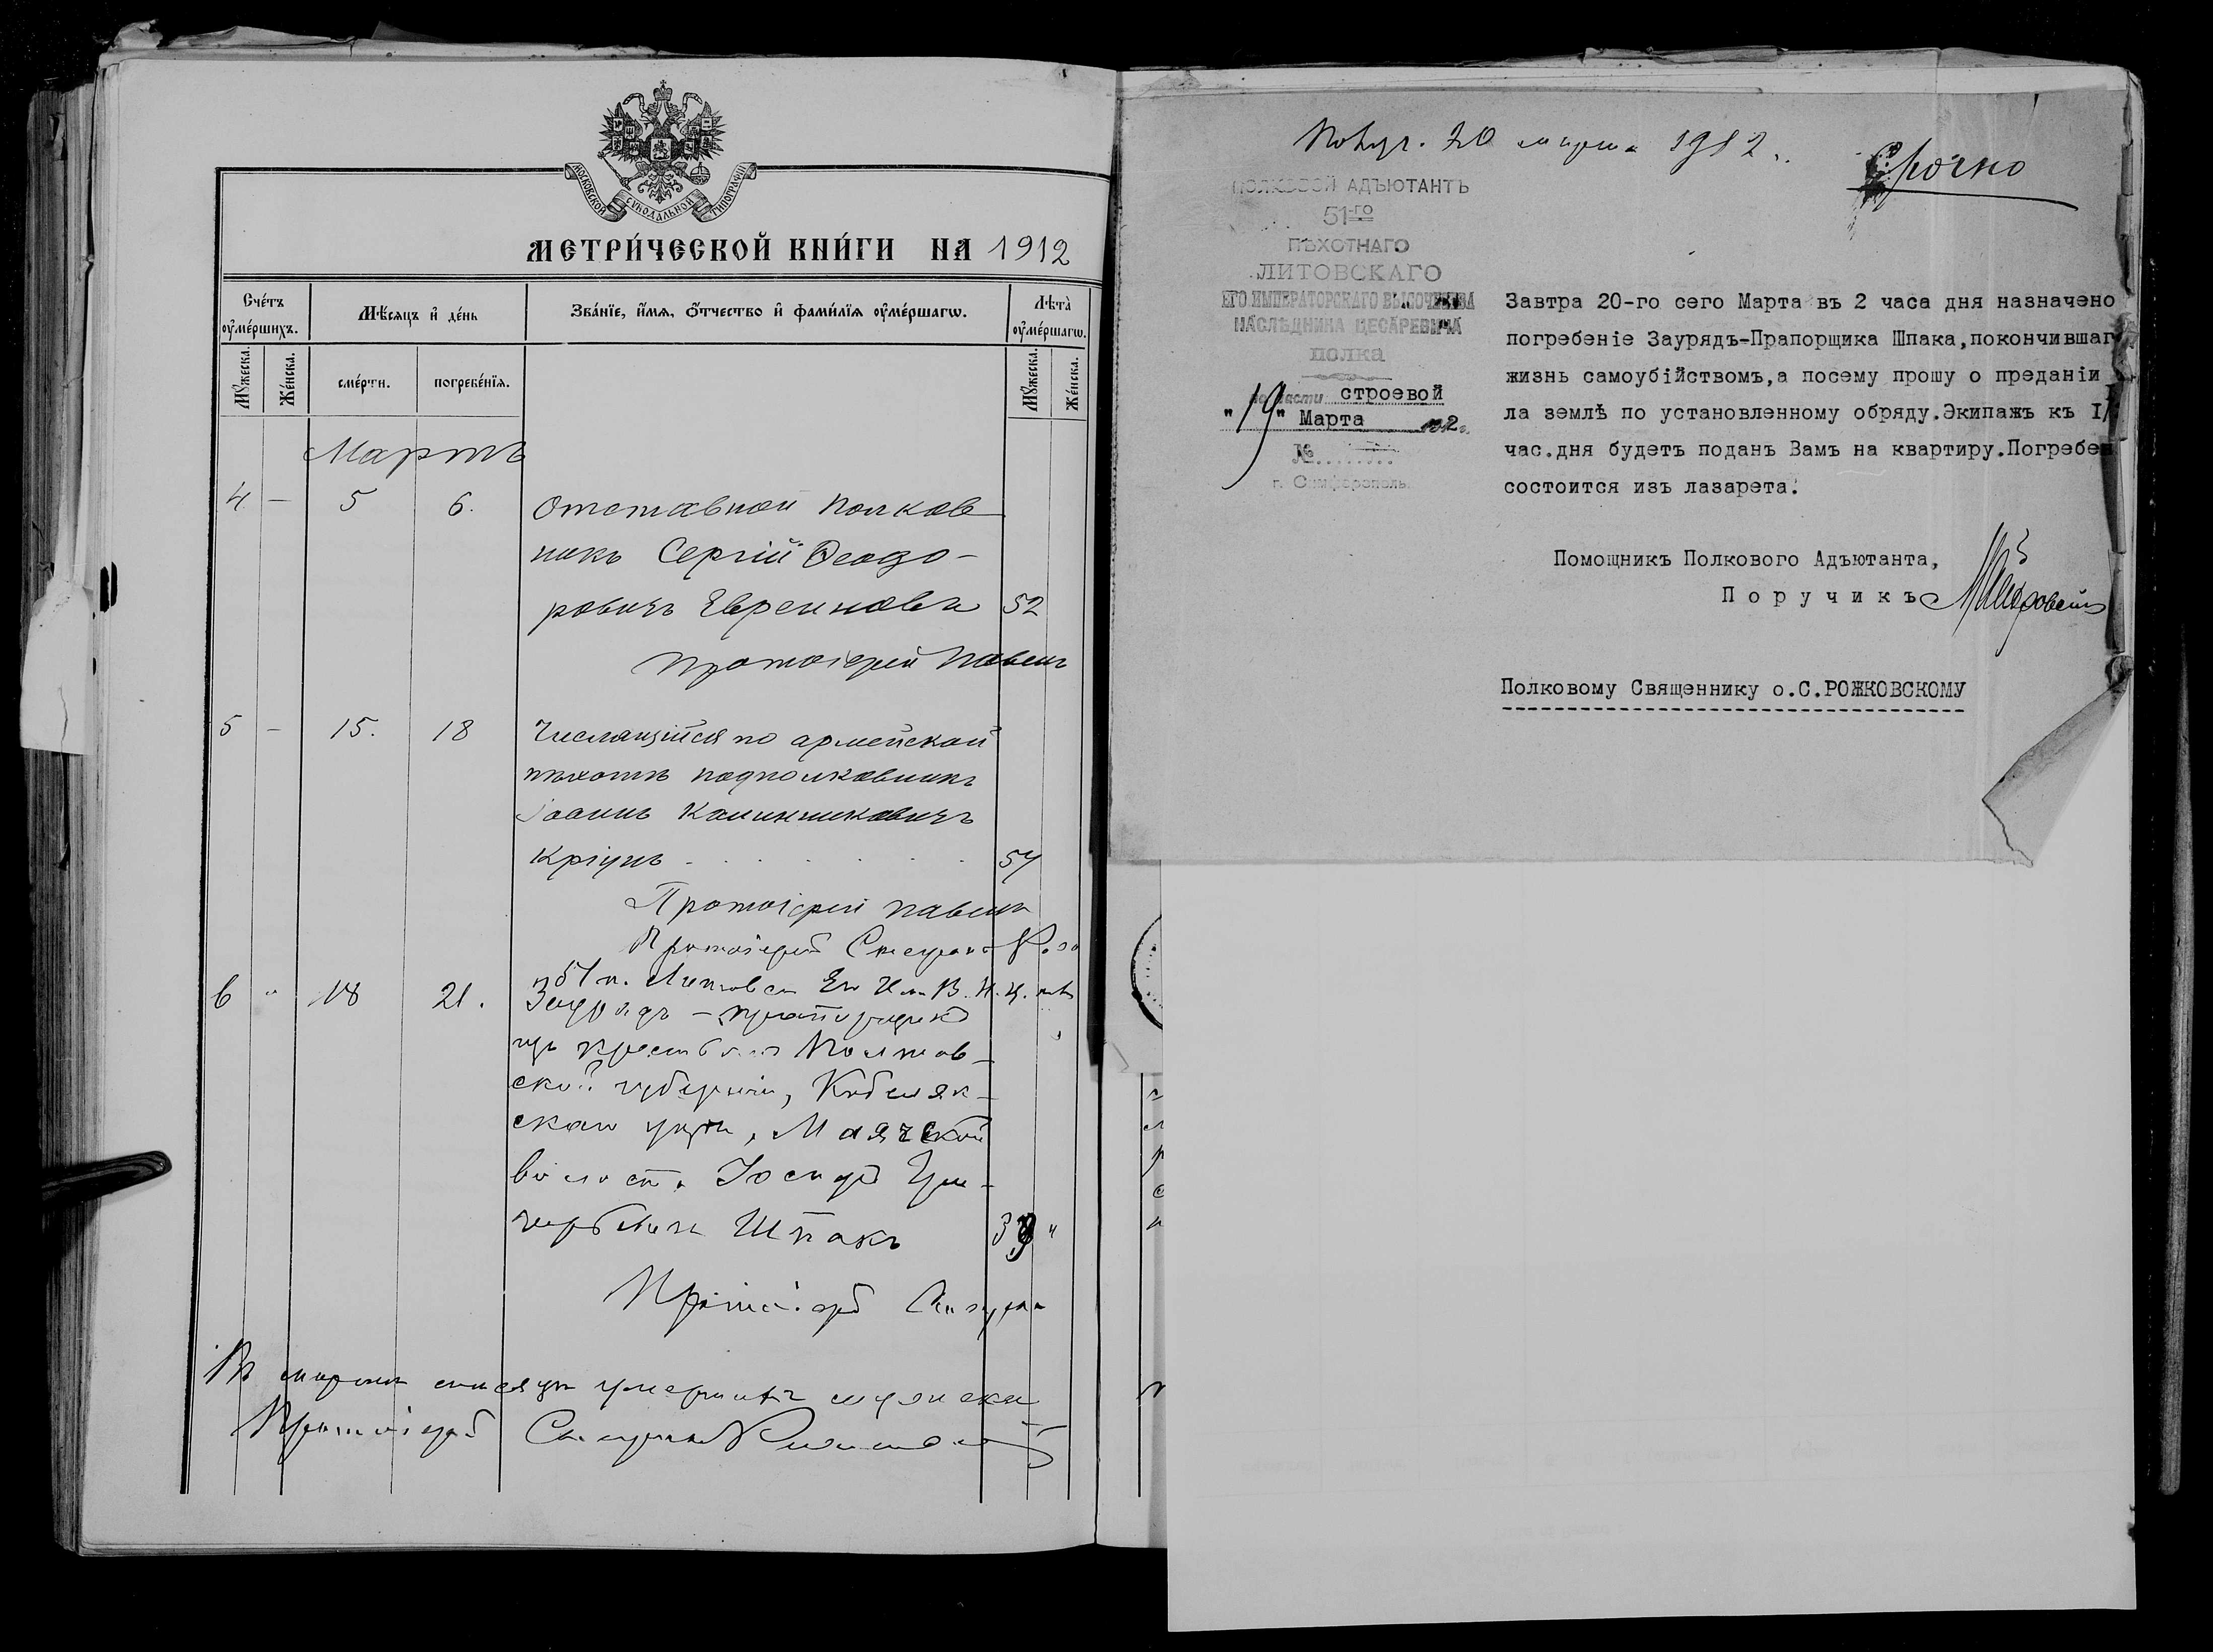 МОСКОВСКОЙ СѴНОДАЛЬНОЙ ТИПОГРАФІИ
МЕТРИ́ЧЕСКОЙ КНИ́ГИ НА 1912
Сче́тъ ᲂу҆ме́ршихъ.
Мѣ́сяцъ и҆ де́нь
Зва́нїе, и҆́мѧ, ѻ҆́тчество и҆ фами́лїѧ ᲂу҆ме́ршагѡ.
Лѣ́та ᲂу҆ме́ршагѡ.
Мꙋ́жеска.
Же́нска.
сме́рти.
погребе́нїѧ.
Мꙋ́жеска.
Же́нска.
Мартъ
4 — 5 6. Отставной Полков
никъ Сергій Ѳеодо-
ровичъ Евреиновъ 52
Протоіерей Павелъ
5 — 15. 18 Числящійся по армейской
пѣхотѣ подполковникъ
Іоаннъ Калинниковичъ
Кріунъ 54
Протоіерей Павелъ
Протоіерей
6 " 18 21. 51 п. Литовск Его Им. В. Н. Ц. полка
Заурядъ-прапорщикъ
изъ крестьянъ Полтав-
ской губерніи, Кобеляк-
скаго уѣзда, Маячской
волости Іосифъ Гри-
горьевичъ Шпакъ 39 "
Протоіерей
Въ мартѣ мѣсяцѣ умершихъ мужеска
Протоіерей
Получ. 20 марта 1912 г.
Срочно
ПОЛКОВОЙ АДЪЮТАНТЪ
51-ГО
ПѢХОТНАГО
ЛИТОВСКАГО
ЕГО ИМПЕРАТОРСКАГО ВЫСОЧЕСТВА
НАСЛѢДНИКА ЦЕСАРЕВИЧА
ПОЛКА
по части строевой
"19" Марта 1912 г.
№........
г. Симферополь.
Завтра 20-го сего Марта въ 2 часа дня назначено
погребеніе Заурядъ-Прапорщика Шпака,покончившаг
жизнь самоубійствомъ,а посему прошу о преданіи
ла землѣ по установленному обряду.Экипажъ къ I½
час.дня будетъ поданъ Вамъ на квартиру.Погребен
состоится изъ лазарета.
Помощникъ Полкового Адъютанта,
Поручикъ
Полковому Священнику о.С.РОЖКОВСКОМУ